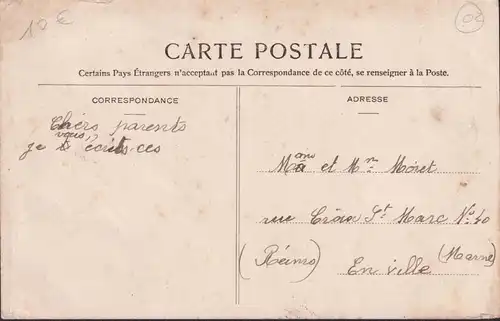 12€
02
CARTE POSTALE
Certains Pays Étrangers n'acceptant pas la Correspondance de ce côté, se renseigner à la Poste.
CORRESPONDANCE
Chers parents
je vous écrits ces
ADRESSE
et Mr Moret
rue Croix St Marc No 40
(Reims) (Marne)
En ville